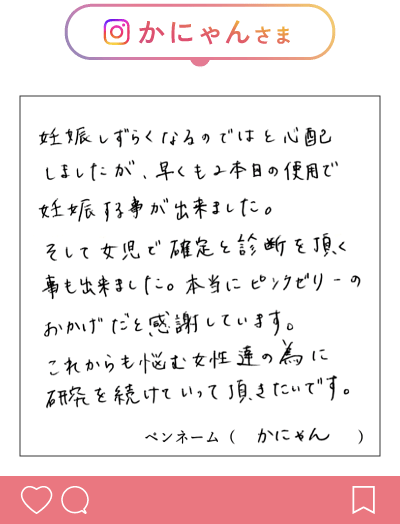 かにゃんさま
妊娠しずらくなるのではと心配
しましたが、早くも2本目の使用で
妊娠する事が出来ました。
そして女児で確定と診断を頂く
事も出来ました。本当にピンクゼリーの
おかげだと感謝しています。
これからも悩む女性達の為に
研究を続けていって頂きたいです。
ペンネーム（ かにゃん ）